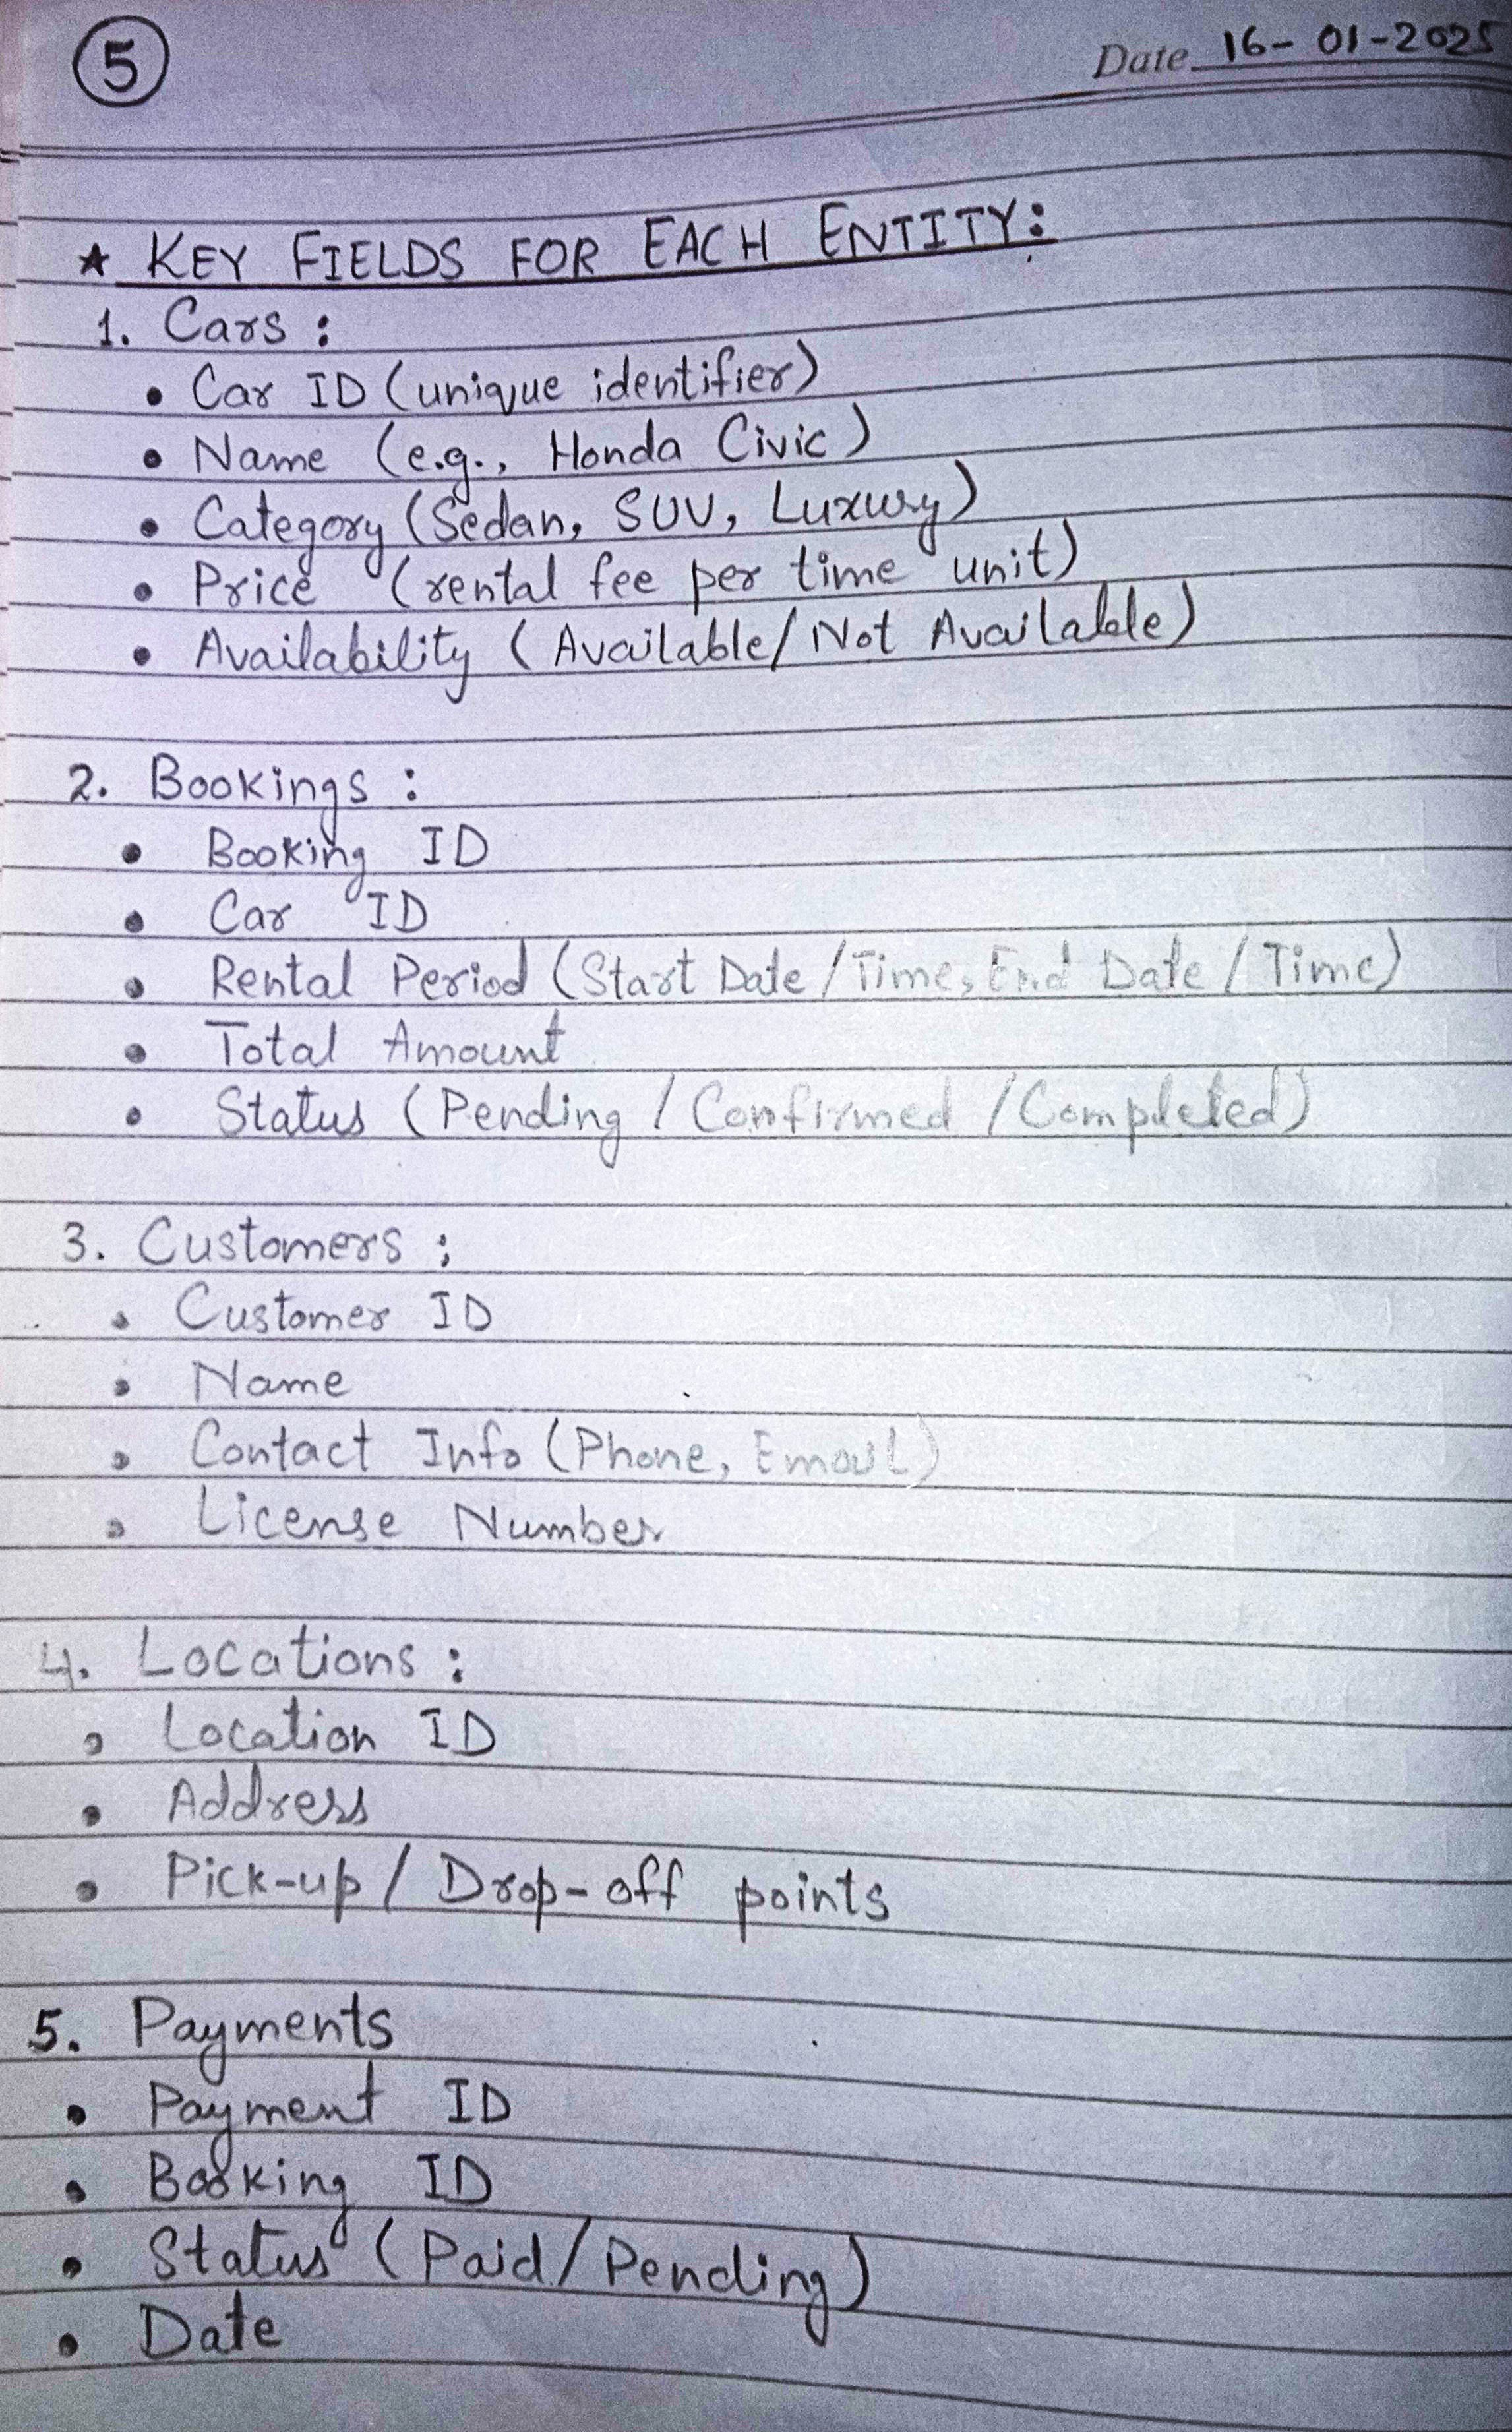 5
Date 16-01-2025
★ KEY FIELDS FOR EACH ENTITY:
1. Cars :
• Car ID (unique identifier)
• Name (e.g., Honda Civic)
• Category (Sedan, SUV, Luxury)
• Price (rental fee per time unit)
• Availability (Available/Not Available)
2. Bookings :
• Booking ID
• Car ID
• Rental Period (Start Date/Time, End Date/Time)
• Total Amount
• Status (Pending/Confirmed/Completed)
3. Customers ;
• Customer ID
• Name
• Contact Info (Phone, Email)
• License Number
4. Locations :
• Location ID
• Address
• Pick-up/Drop-off points
5. Payments
• Payment ID
• Booking ID
• Status (Paid/Pending)
• Date